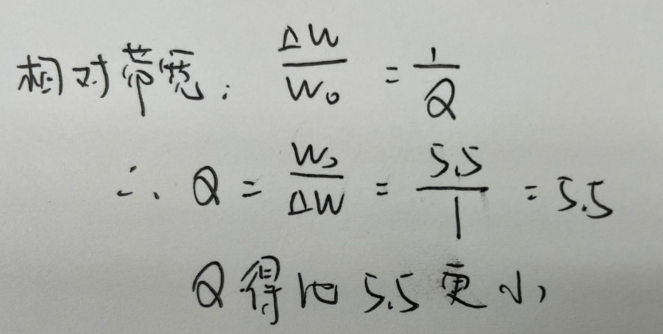 相对带宽: ΔW/W₀ = 1/Q
∴ Q = W₀/ΔW = 5.5/1 = 5.5
Q得比5.5更小